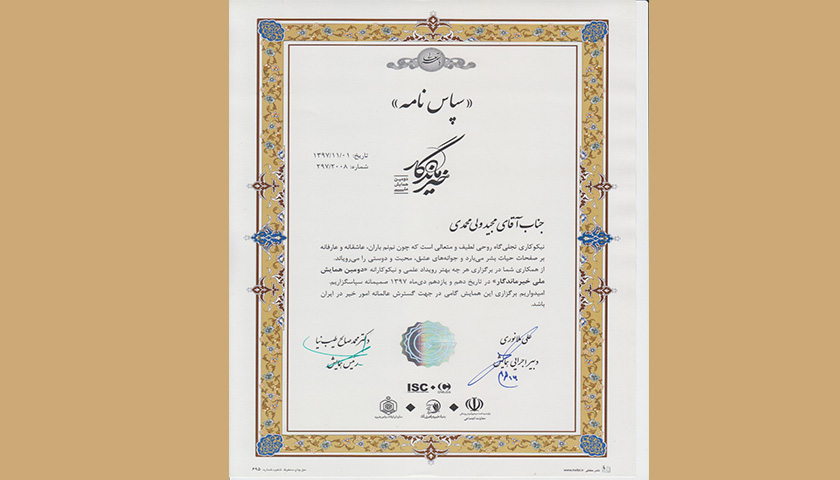 «سپاس نامه»
تاریخ: ۱۳۹۷/۱۱/۰۱
شماره: ۲۹۷/۲۰۰۸
خیر ماندگار
دومین
همایش
ملی
جناب آقای مجید ولی محمدی
نیکوکاری تجلی‌گاه روحی لطیف و متعالی است که چون نم‌نم باران، عاشقانه و عارفانه
بر صفحات حیات بشر می‌بارد و جوانه‌های عشق، محبت و دوستی را می‌رویاند.
از همکاری شما در برگزاری هر چه بهتر رویداد علمی و نیکوکارانه «دومین همایش
ملی خیرماندگار» در تاریخ دهم و یازدهم دی‌ماه ۱۳۹۷ صمیمانه سپاسگزاریم.
امیدواریم برگزاری این همایش گامی در جهت گسترش عالمانه امور خیر در ایران
باشد.
علی ملانوری
دبیر اجرایی همایش
دکتر محمد صالح طیب نیا
رئیس همایش
ISC